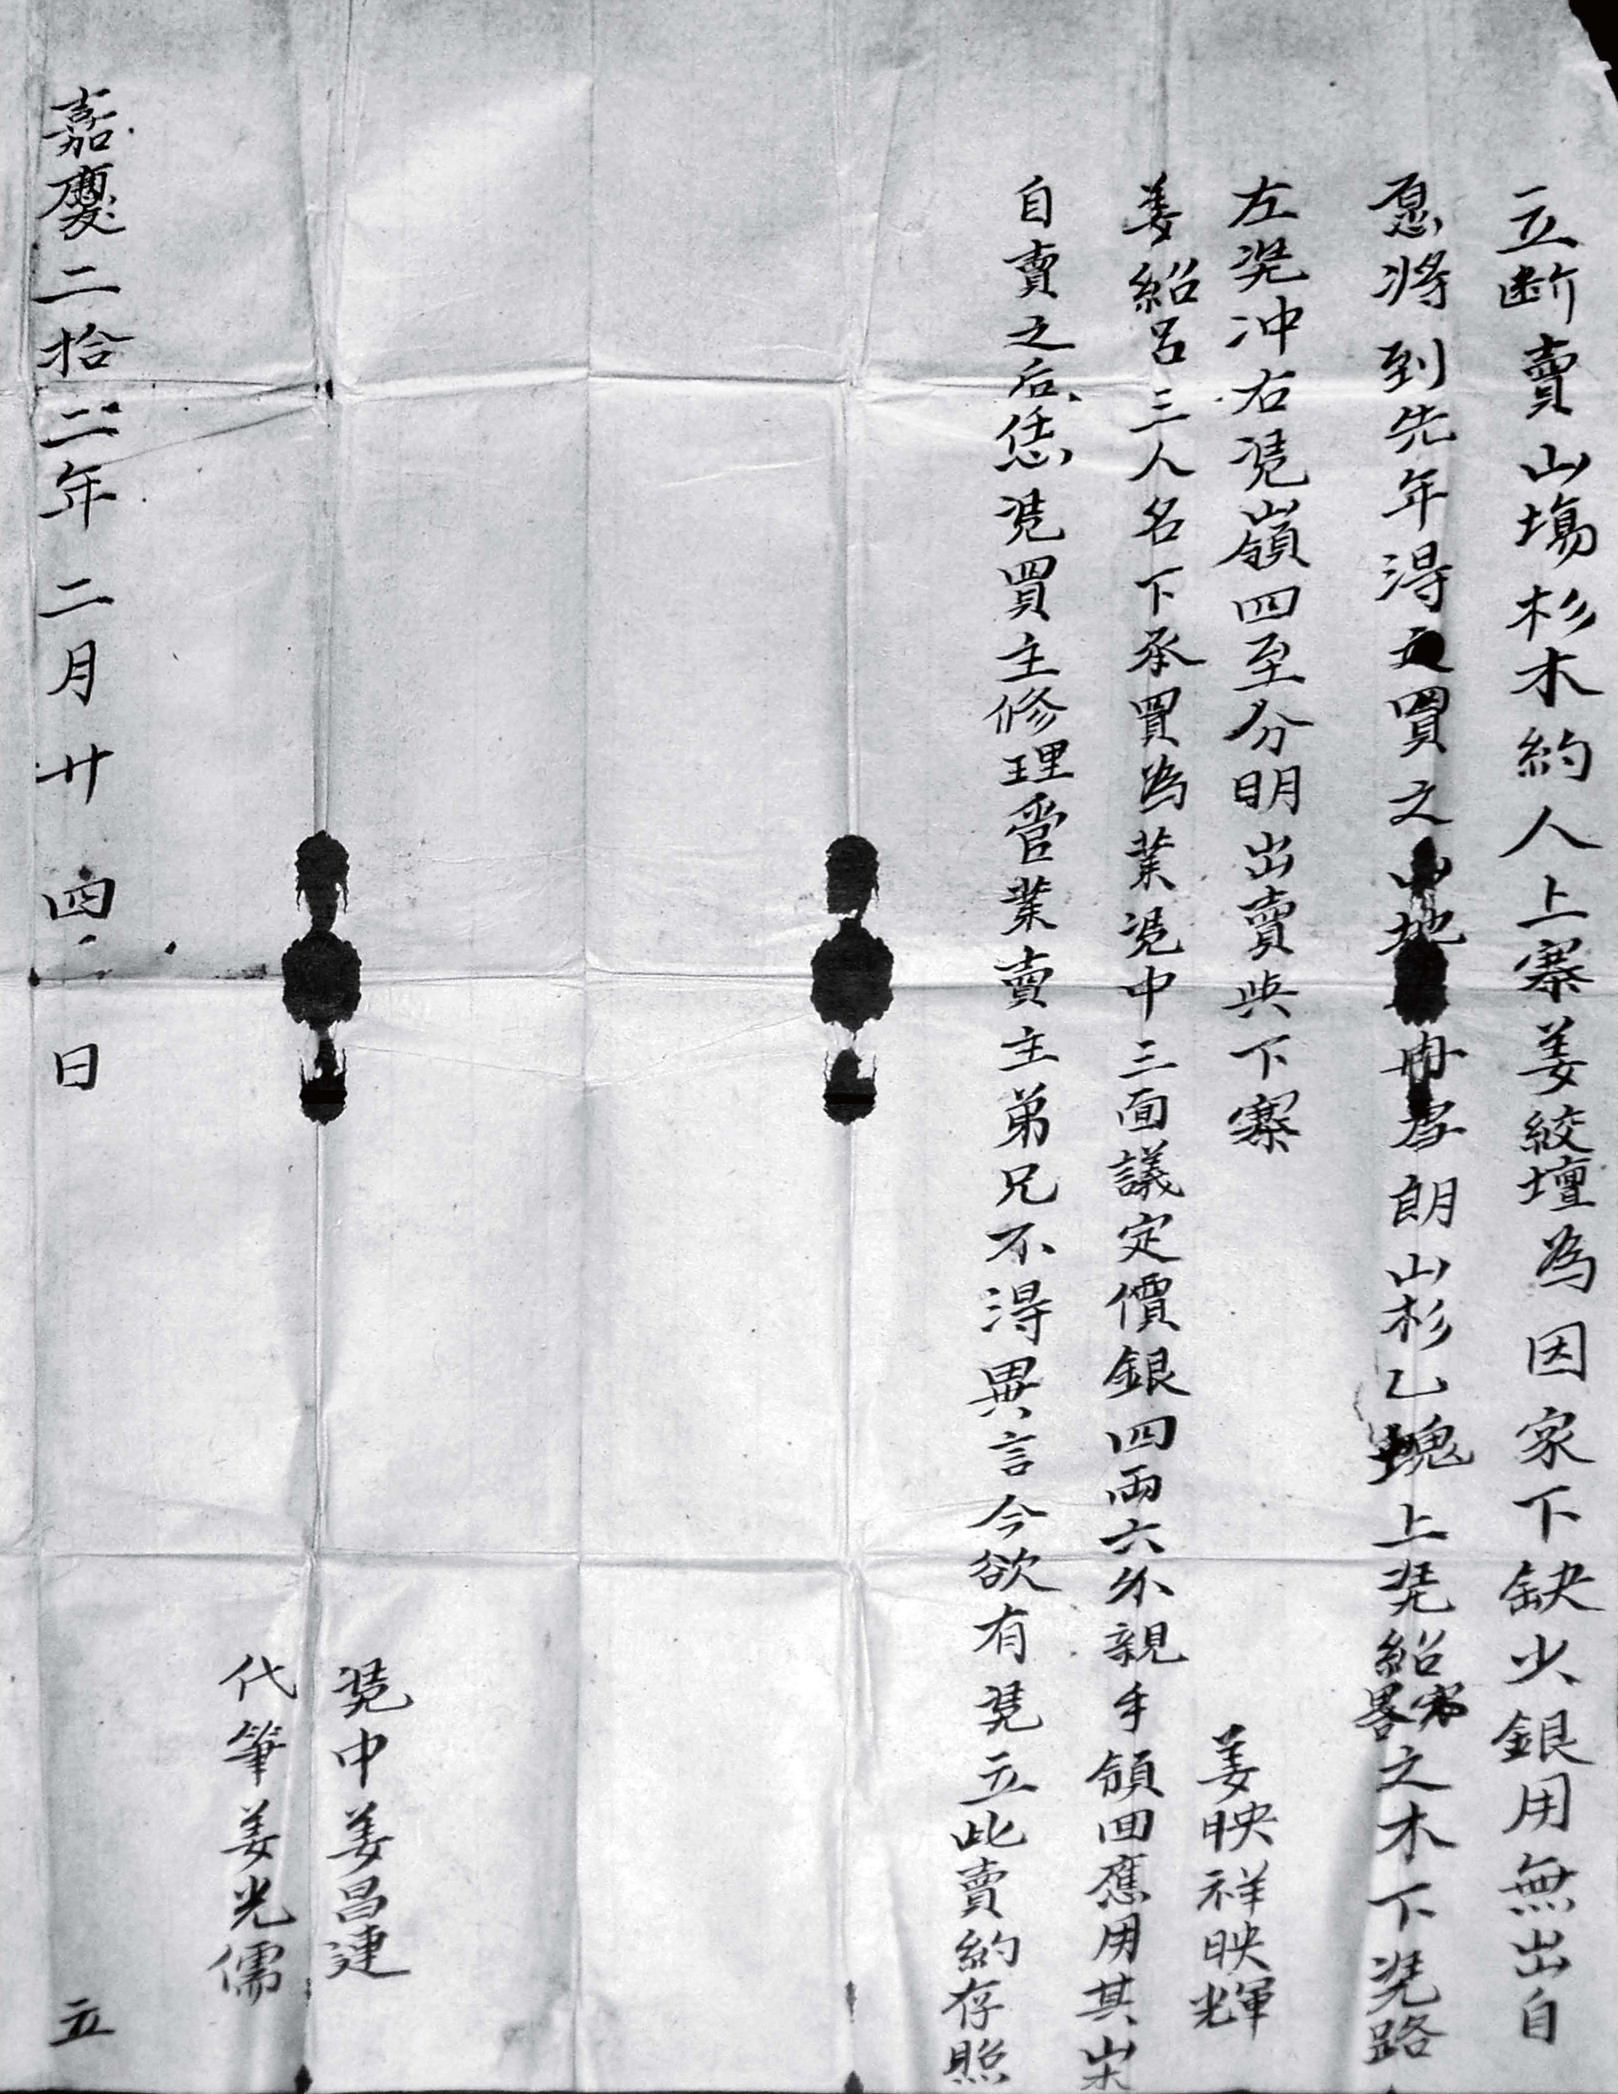 立断賣山塲杉木約人上寨姜絞壇為因家下缺少銀用無出自
愿將到先年得買之山地冉朗山杉乙塊上凴紹畧之木下凴路
左凴冲右凴嶺四至分明出賣與下寨姜映祥映輝
姜紹呂三人名下承買為業凴中三面議定價銀四両六分親手領回應用其山木
自賣之后恁凴買主修理管業賣主弟兄不得異言今欲有凴立此賣約存照
凴中姜昌連
代筆姜光儒
嘉慶二拾二年二月廿四日立